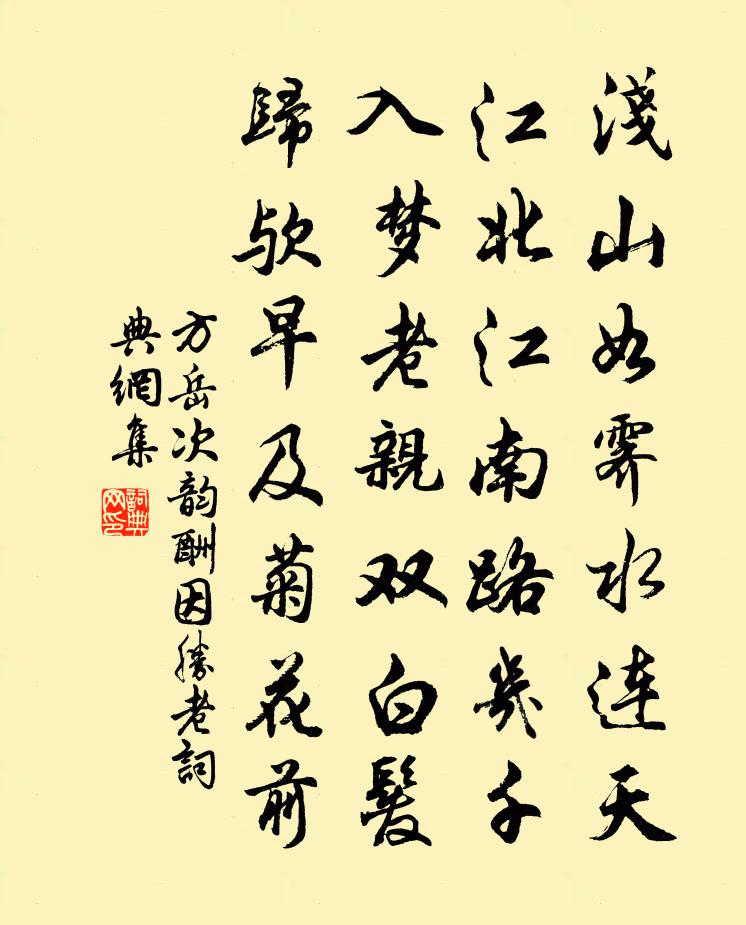 淺山如霁水連天
江北江南路幾千
入梦老親双白髮
歸欤早及菊花前
方岳次韵酬因勝老詞
典網集
詞典网印